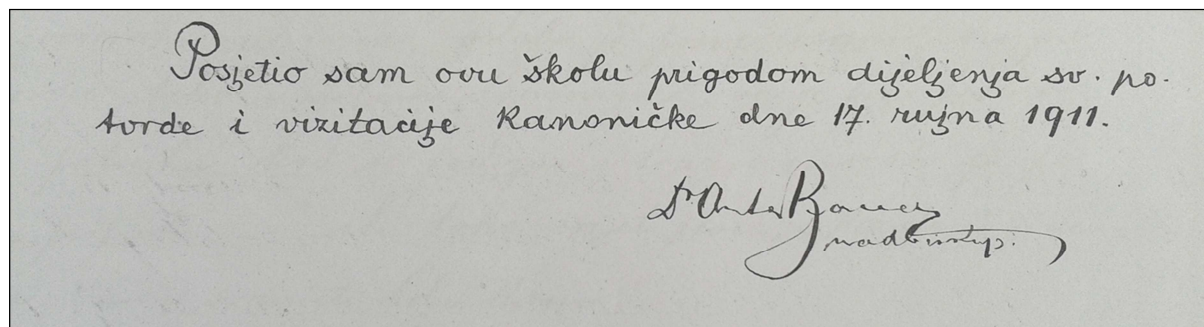 Posjetio sam ovu školu prigodom dijeljenja sv. po-
tvrde i vizitacije kanoničke dne 17. rujna 1911.
Dr Ante Bauer
nadbiskup.